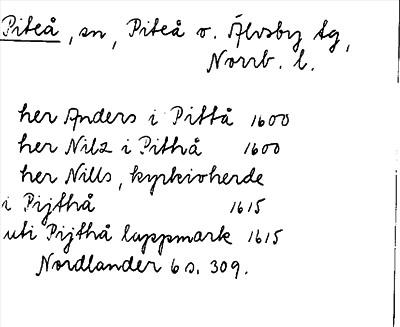 Piteå, sn, Piteå o. Älvsby tg,
Norrb. l.
her Anders i Pittå 1600
her Nils i Pithå 1600
her Nills, kyrkioherde
i Pijthå 1615
uti Pijthå lappmark 1615
Nordlander 6 s. 309.